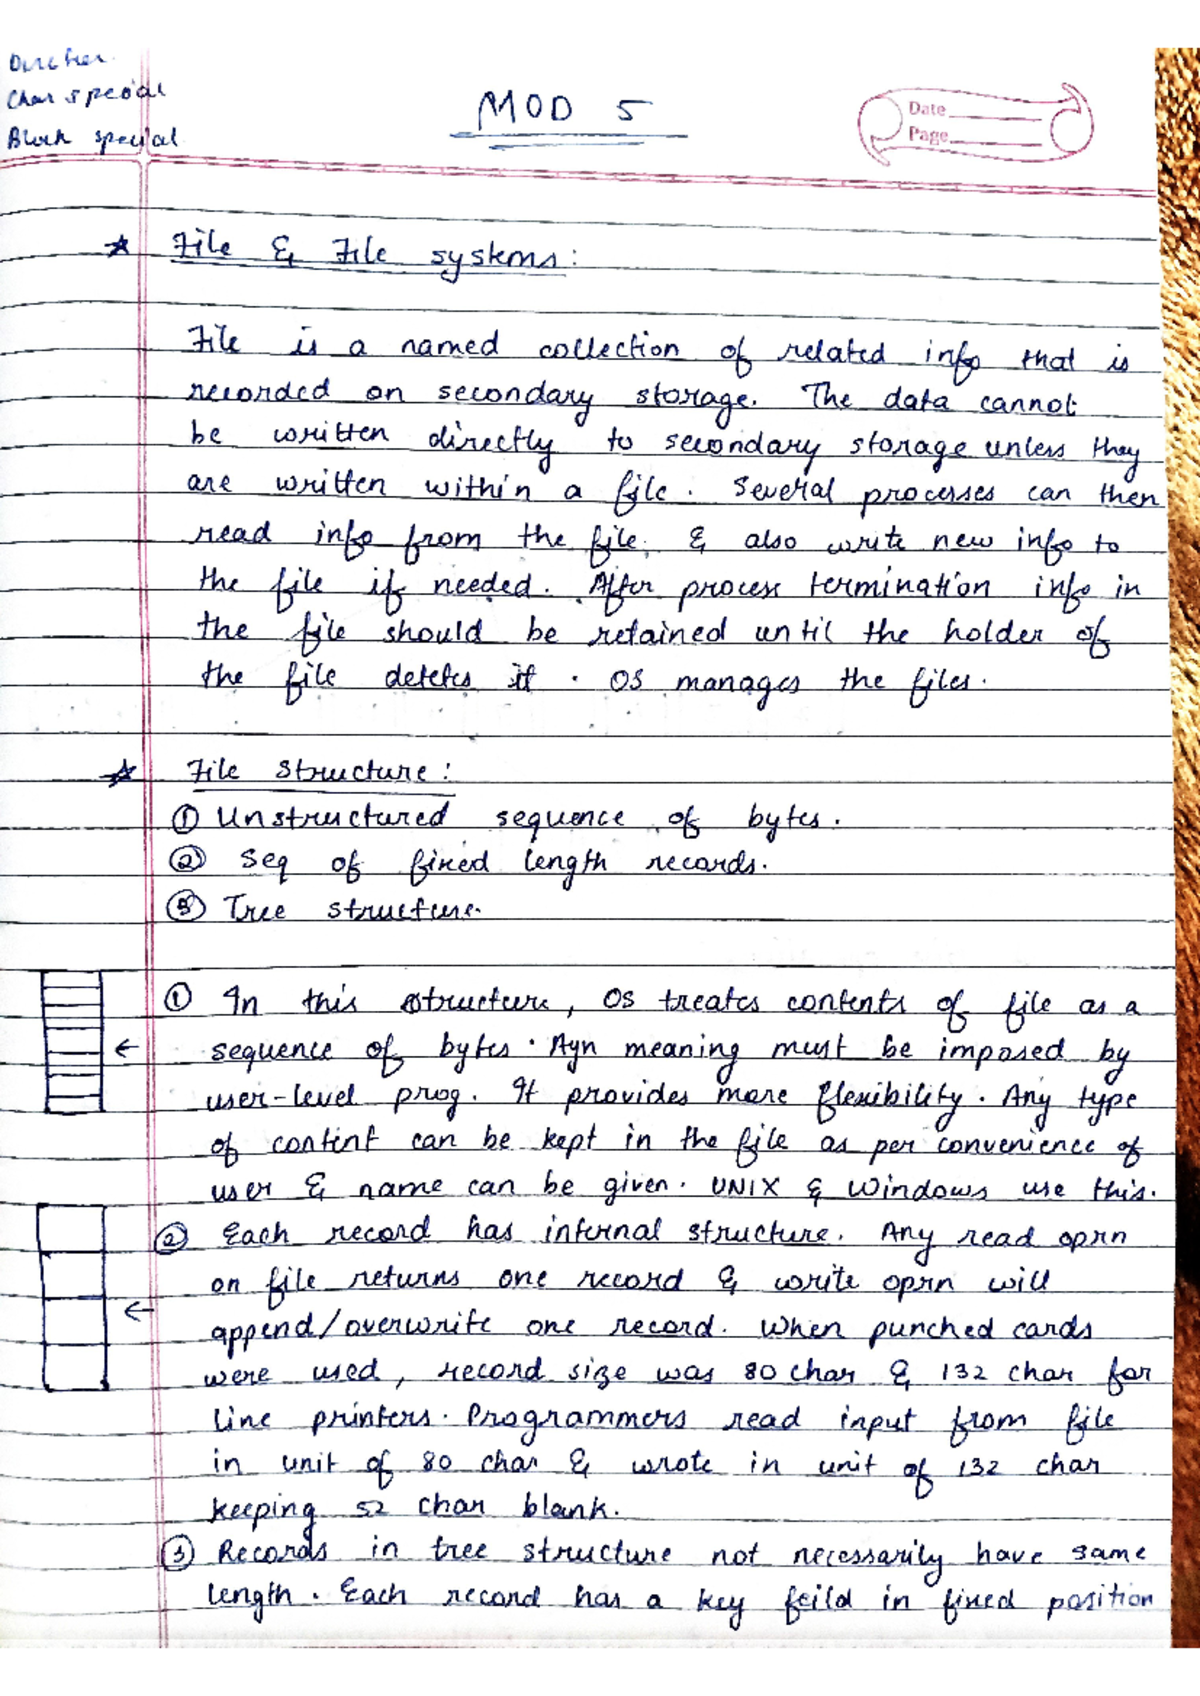 Char special
Block special
MOD 5
Date
Page
★ File & File systems:
File is a named collection of related info that is
recorded on secondary storage. The data cannot
be written directly to secondary storage unless they
are written within a file. Several processes can then
read info from the file. & also write new info to
the file if needed. After process termination info in
the file should be retained until the holder of
the file deletes it. OS manages the files.
★ File Structure:
① Unstructured sequence of bytes.
② Seq of fixed length records.
③ Tree structure.
① In this structure, OS treats contents of file as a
← sequence of bytes. Ayn meaning must be imposed by
user-level prog. It provides more flexibility. Any type
of content can be kept in the file as per convenience of
user & name can be given. UNIX & Windows use this.
② Each record has internal structure. Any read oprn
on file returns one record & write oprn will
← append/overwrite one record. When punched cards
were used, record size was 80 char & 132 char for
line printers. Programmers read input from file
in unit of 80 char & wrote in unit of 132 char
keeping 52 char blank.
③ Records in tree structure not necessarily have same
length. Each record has a key feild in fixed position